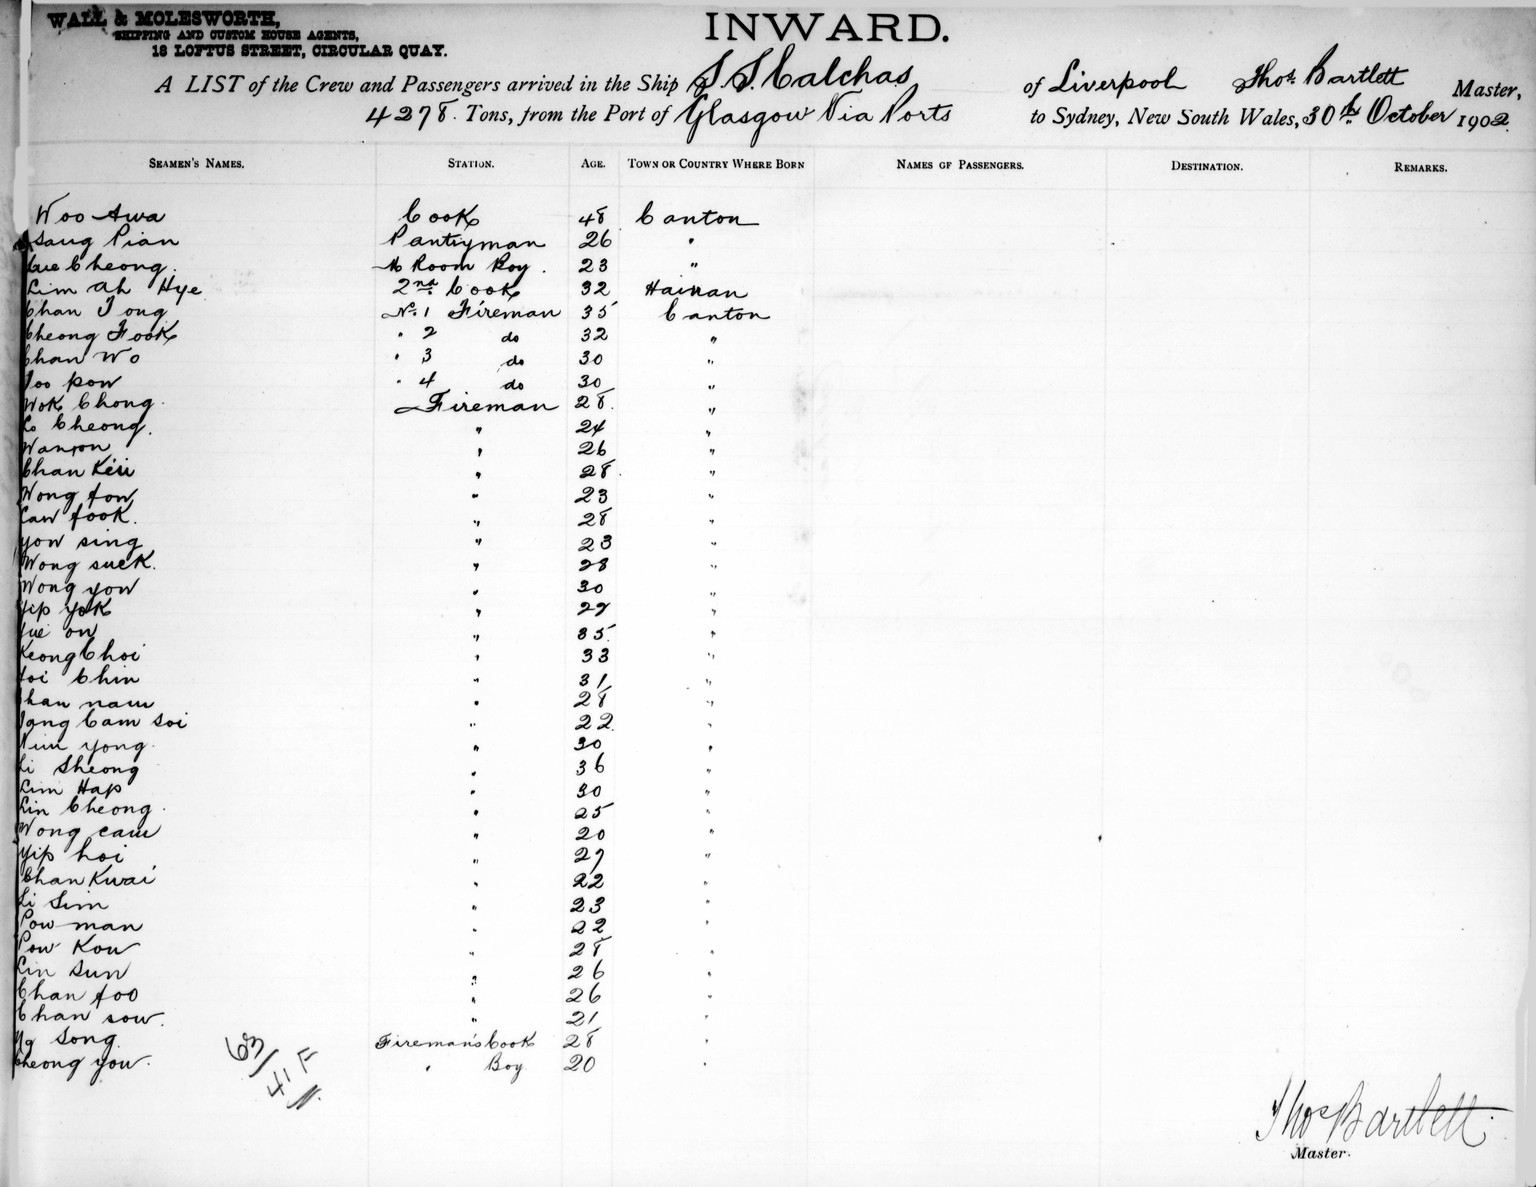 WALL & MOLESWORTH,
SHIPPING AND CUSTOM HOUSE AGENTS,
18 LOFTUS STREET, CIRCULAR QUAY.
INWARD.
A LIST of the Crew and Passengers arrived in the Ship S.S. Calchas of Liverpool Thos. Bartlett Master,
4278. Tons, from the Port of Glasgow Via Ports to Sydney, New South Wales, 30th October 1902.
SEAMEN'S NAMES. STATION. AGE. TOWN OR COUNTRY WHERE BORN NAMES OF PASSENGERS. DESTINATION. REMARKS.
Woo Awa Cook 48 Canton
Pian Pantryman 26 "
Cheong. M Room Boy. 23 "
Lim Ah Hye 2nd Cook 32 Hainan
Chan Tong No. 1 Fireman 35 Canton
Cheong Fook " 2 do 32 "
Chan Wo " 3 do 30 "
pow " 4 do 30 "
Wok Chong. Fireman 28. "
Lo Cheong. " 24 "
" 26 "
Chan " 28. "
Wong " 23 "
Law fook. " 28 "
yow sing " 23 "
Wong suck. " 28 "
Wong yow " 30 "
Yip yok " 27 "
on " 35. "
Keong Choi " 33 "
Chin " 31 "
Chan nam " 28 "
Cam soi " 22 "
yong. " 30 "
Li Sheong " 36 "
Lim Hap " 30 "
Lin Cheong. " 25 "
Wong cam " 20 "
Yip hoi " 27 "
Chan Kwai " 22 "
Li Sim " 23 "
Pow man " 22 "
Pow Kow " 28 "
Lin Sun " 26 "
Chan foo " 26 "
Chan sow. " 21 "
Ng Song. Fireman's Cook 28 "
Cheong you. " Boy 20 "
63/
41 F
Thos Bartlett.
Master.